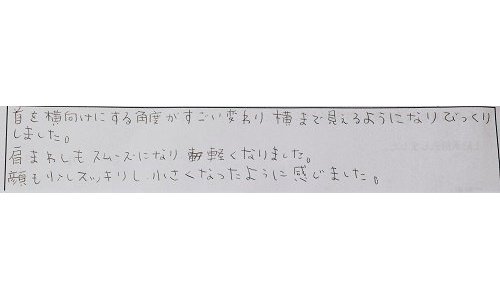 首を横向けにする角度がすごい変わり横まで見えるようになりびっくり
しました。
肩まわしもスムーズになり軽くなりました。
顔も少しスッキリし小さくなったように感じました。